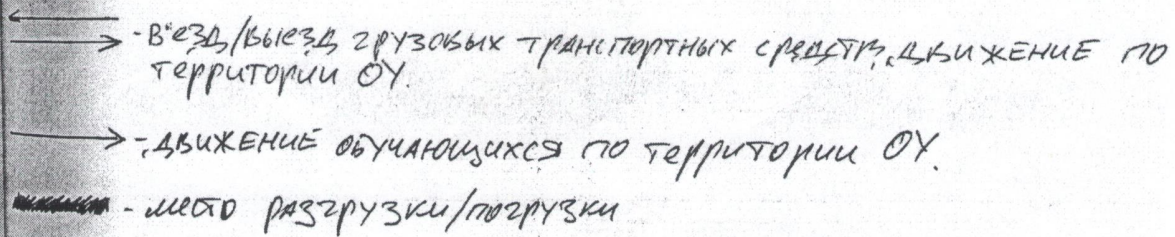 - В'езд/выезд грузовых транспортных средств, движение по
территории ОУ.
- движение обучающихся по территории ОУ.
- место разгрузки/погрузки